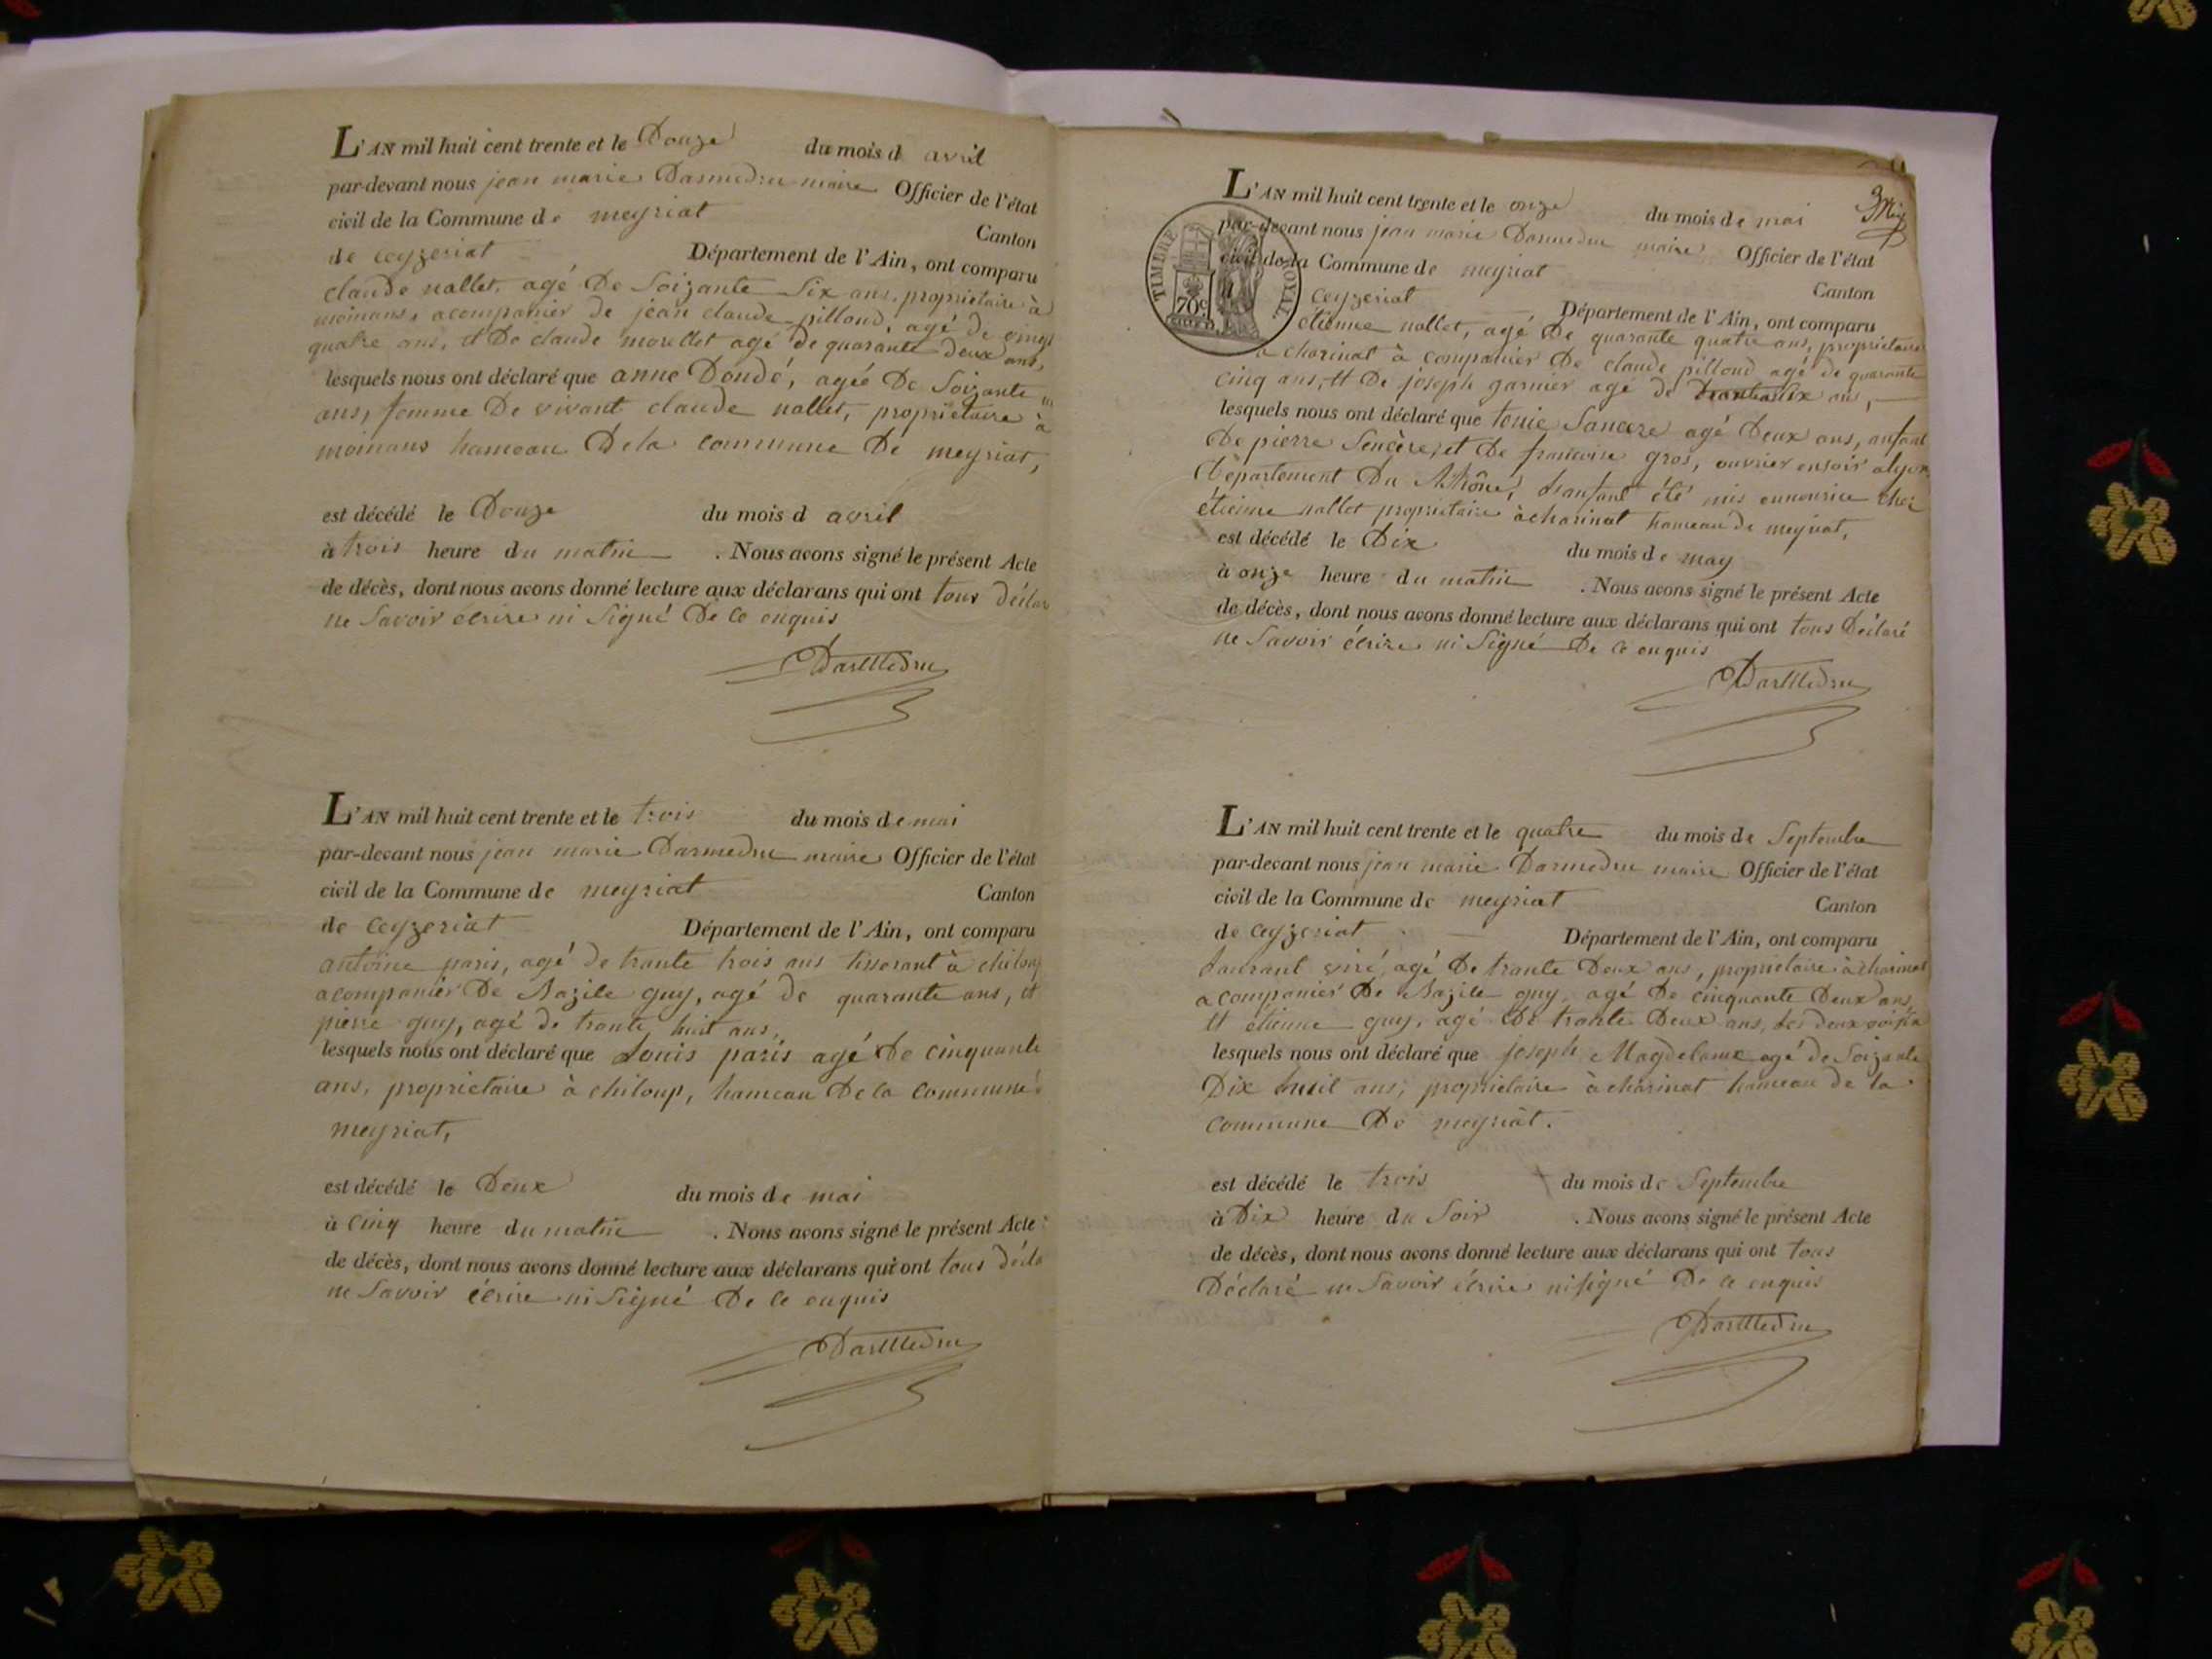 L'AN mil huit cent trente et le Douze du mois d avril
par-devant nous jean marie Darmedru maire Officier de l'état
civil de la Commune de meyriat Canton
de ceyzeriat Département de l'Ain, ont comparu
claude nallet, agé De Soizante Six ans, propriétaire à
moinans, acompanier de jean claude pillond, agé de vingt
quatre ans, et De claude morellet agé de quarante deux ans,
lesquels nous ont déclaré que anne Dondé, agée De Soizante
ans, femme De vivant claude nallet, propriétaire à
moinans hameau Dela commune De meyriat,
est décédé le Douze du mois d avril
à trois heure du matin . Nous avons signé le présent Acte
de décès, dont nous avons donné lecture aux déclarans qui ont tous déclar
ne Savoir écrire ni Signé De ce enquis
DarMedru
L'AN mil huit cent trente et le trois du mois de mai
par-devant nous jean marie Darmedru maire Officier de l'état
civil de la Commune de meyriat Canton
de ceyzeriat Département de l'Ain, ont comparu
antoine paris, agé de trante trois ans tisserant à chiloup
acompanier De Bazile guy, agé de quarante ans, et
pierre guy, agé de trante huit ans,
lesquels nous ont déclaré que Louis paris agé De cinquante
ans, propriétaire à chiloup, hameau De la commune
meyriat,
est décédé le Deux du mois de mai
à cinq heure du matin . Nous avons signé le présent Acte
de décès, dont nous avons donné lecture aux déclarans qui ont tous décla
ne Savoir écrire ni Signé De ce enquis
DarMedru
L'AN mil huit cent trente et le onze du mois de mai
par-devant nous jean marie Darmedru maire Officier de l'état
civil de la Commune de meyriat Canton
TIMBRE ROYAL
70c
ceyzeriat Département de l'Ain, ont comparu
etienne nallet, agé De quarante quatre ans, propriétaire
a charinat à companier De claude pillond agé de quarante
cinq ans, et De joseph garnier agé de ans,
lesquels nous ont déclaré que Sancere agé Deux ans, anfant
De pierre Sencère, et De francoise gros, ouvrier ensoir alyon
Département Du Rhône, Lanfant été mis ennourice chez
étienne nallet propriétaire à charinat hameau de meyriat,
est décédé le Dix du mois de may
à onze heure du matin . Nous avons signé le présent Acte
de décès, dont nous avons donné lecture aux déclarans qui ont tous Déclaré
ne Savoir écrire ni Signé De ce enquis
DarMedru
L'AN mil huit cent trente et le quatre du mois de Septembre
par-devant nous jean marie Darmedru maire Officier de l'état
civil de la Commune de meyriat Canton
de ceyzeriat Département de l'Ain, ont comparu
Laurant viré, agé De trante Deux ans, propriétaire à charinat
acompanier De Bazile guy, agé De cinquante Deux ans,
et etienne guy, agé De trante Deux ans, Les deux
lesquels nous ont déclaré que joseph agé de Soizante
Dix huit ans, propriétaire à charinat hameau de la
commune De meyriat.
est décédé le trois du mois de Septembre
à Dix heure du Soir . Nous avons signé le présent Acte
de décès, dont nous avons donné lecture aux déclarans qui ont tous
Déclaré ne Savoir écrire ni signé De ce enquis
DarMedru